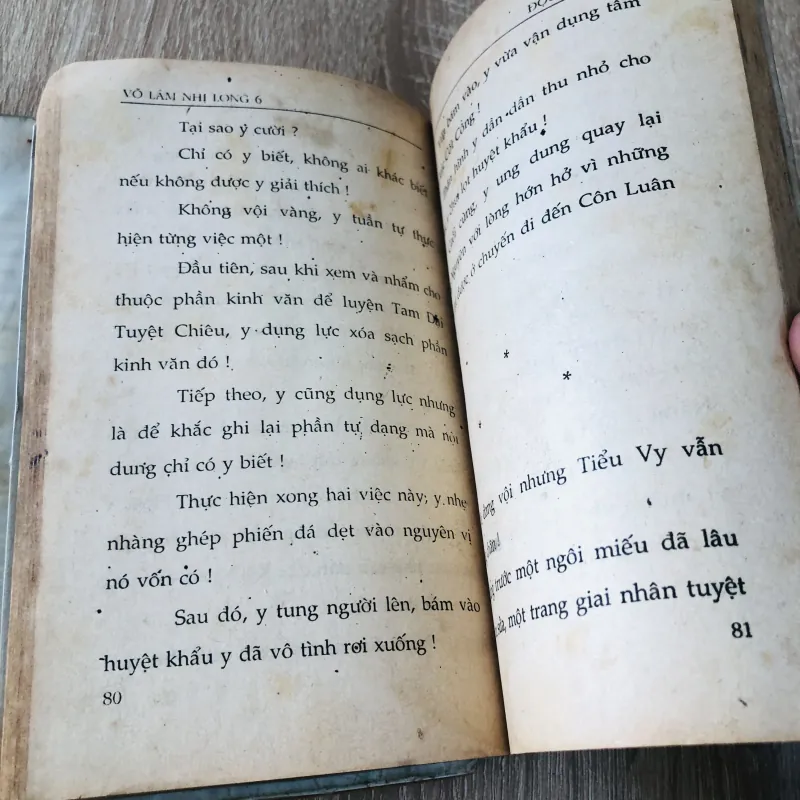 VÕ LÂM NHỊ LONG 6
Tại sao y cười ?
Chỉ có y biết, không ai khác biết
nếu không được y giải thích !
Không vội vàng, y tuần tự thực
hiện từng việc một !
Đầu tiên, sau khi xem và nhẩm cho
thuộc phần kinh văn để luyện Tam Đại
Tuyệt Chiêu, y dụng lực xóa sạch phần
kinh văn đó !
Tiếp theo, y cũng dụng lực nhưng
là để khắc ghi lại phần tự dạng mà nội
dung chỉ có y biết !
Thực hiện xong hai việc này, y nhẹ
nhàng ghép phiến đá dẹt vào nguyên vị
nó vốn có !
Sau đó, y tung người lên, bám vào
huyệt khẩu y đã vô tình rơi xuống !
80
bám vào, y vừa vận dụng tâm
Công !
hình y dần dần thu nhỏ cho
lọt huyệt khẩu !
cùng, y ung dung quay lại
với lòng hớn hở vì những
ở chuyến đi đến Côn Luân
*
*
*
vội nhưng Tiểu Vy vẫn
trước một ngôi miếu đã lâu
một trang giai nhân tuyệt
81